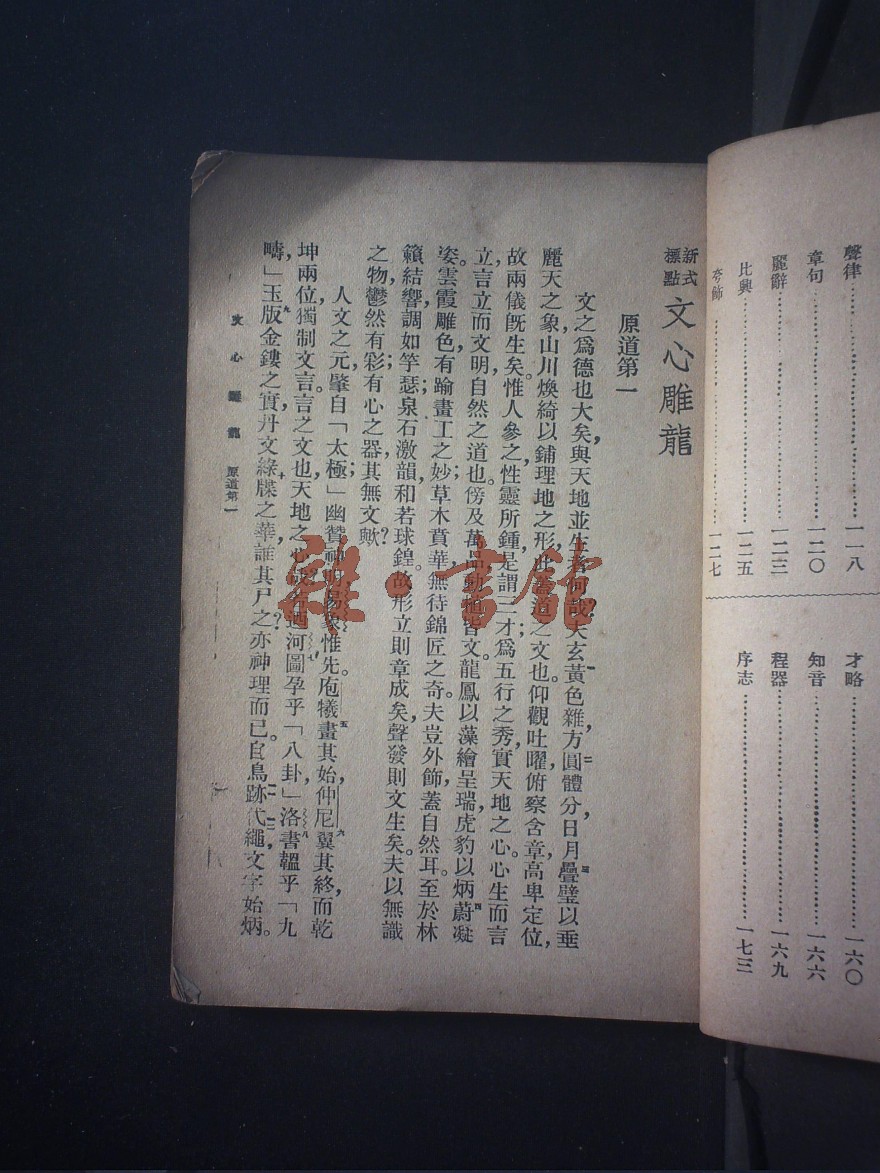 聲律……一一八
章句……一二〇
麗辭……一二三
比興……一二五
夸飾……一二七
才略……一六〇
知音……一六六
程器……一六九
序志……一七三
新式標點 文心雕龍
原道第一
文之爲德也大矣,與天地並生者何哉?夫玄黃一色雜,方圓二體分,日月疊三璧以垂
麗天之象,山川煥綺以鋪理地之形;此蓋道之文也。仰觀吐曜,俯察含章,高卑定位,
故兩儀旣生矣。惟人參之,性靈所鍾,是謂三才;爲五行之秀,實天地之心。心生而言
立,言立而文明,自然之道也。傍及萬品,動植皆文。龍鳳以藻繪呈瑞,虎豹以炳蔚四凝
姿。雲霞雕色,有踰畫工之妙;草木賁華,無待錦匠之奇。夫豈外飾,蓋自然耳。至於林
籟結響,調如竽瑟;泉石激韻,和若球鍠。故形立則章成矣,聲發則文生矣。夫以無識
之物,鬱然有彩;有心之器,其無文歟?
人文之元,肇自「太極」幽贊神明,易象惟先。庖犧五畫其始,仲尼六翼其終,而乾
坤兩位,獨制文言。言之文也,天地之心哉!若迺河圖七孕乎「八卦」,洛書八韞乎「九
疇,」玉九版金鏤之實,丹文綠十牒之華,誰其尸之?亦神理而已。自鳥跡代繩,文字始炳。
文心雕龍 原道第一
雜·書館